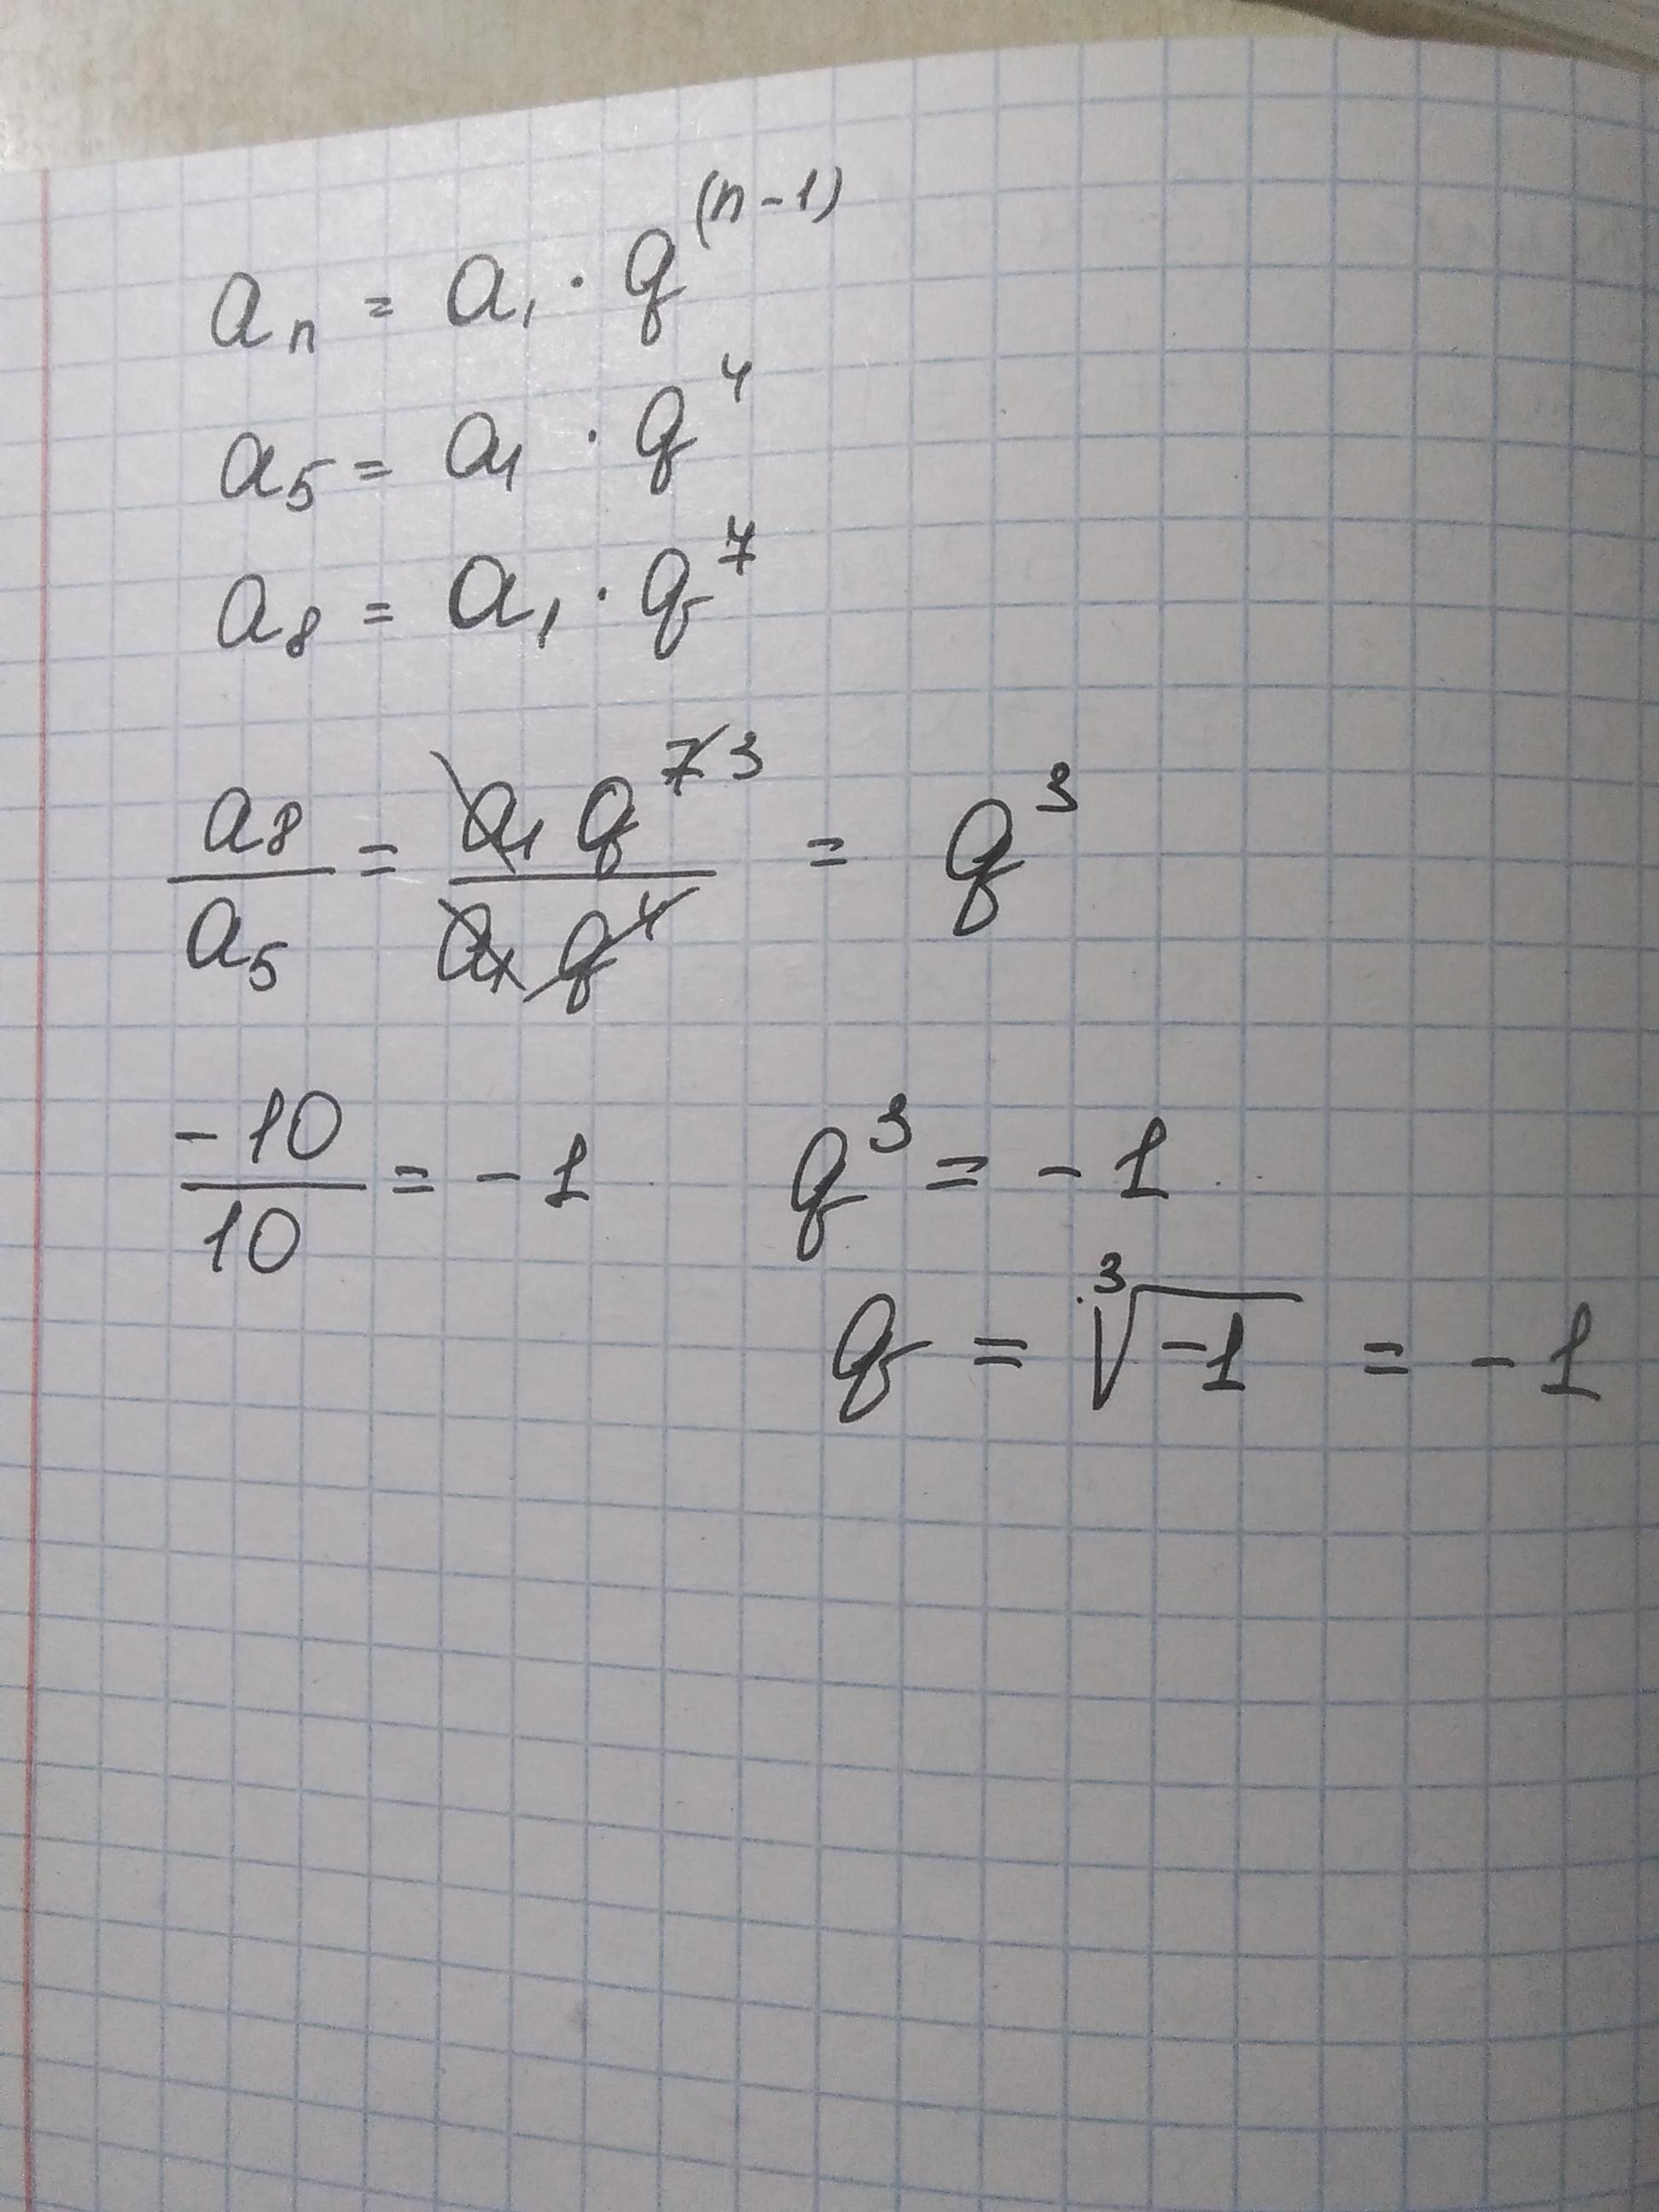 aₙ = a₁ · q⁽ⁿ⁻¹⁾
a₅ = a₁ · q⁴
a₈ = a₁ · q⁷
a₈/a₅ = a₁ q⁷ ³ / a₁ q⁴ = q³
-10/10 = -1 q³ = -1
q = ³√-1 = -1